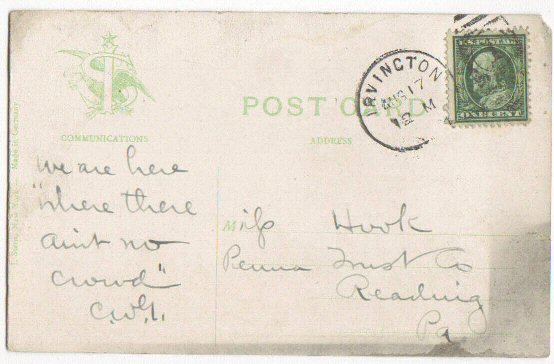 POST CARD
COMMUNICATIONS
ADDRESS
IRVINGTON
AUG 17
12 M
U.S. POSTAGE
ONE CENT
Made in Germany
We are here
"where there
aint no
crowd"
Miss Hook
Penna Trust Co
Reading
Pa